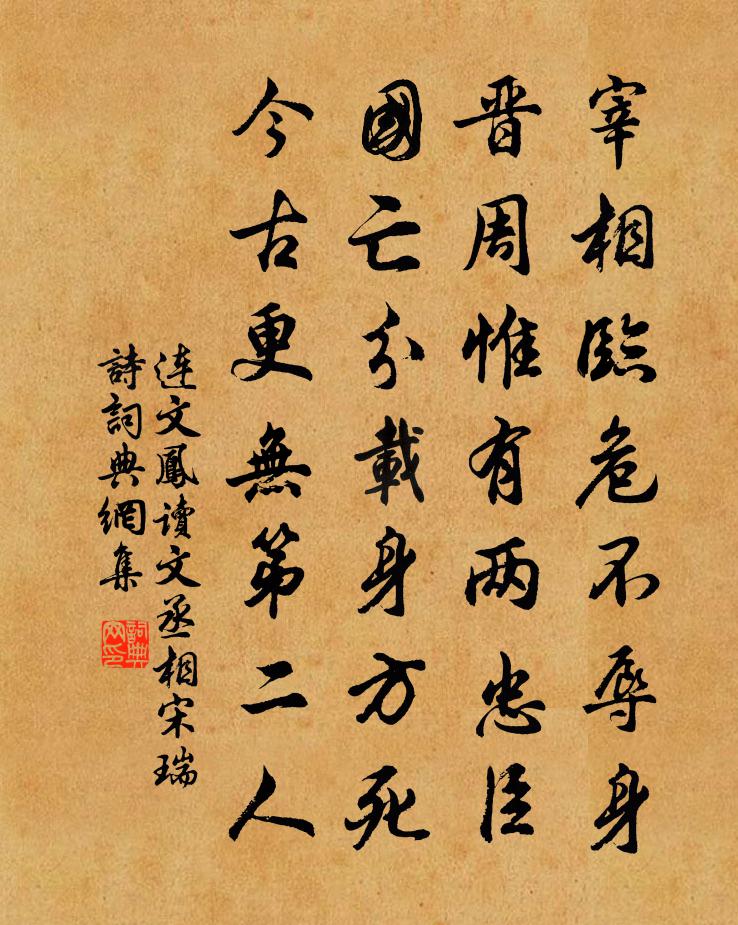 宰相臨危不辱身
晋周惟有两忠臣
國亡分載身方死
今古更無第二人
连文鳳读文丞相宋瑞
詩詞典網集
詞典网印